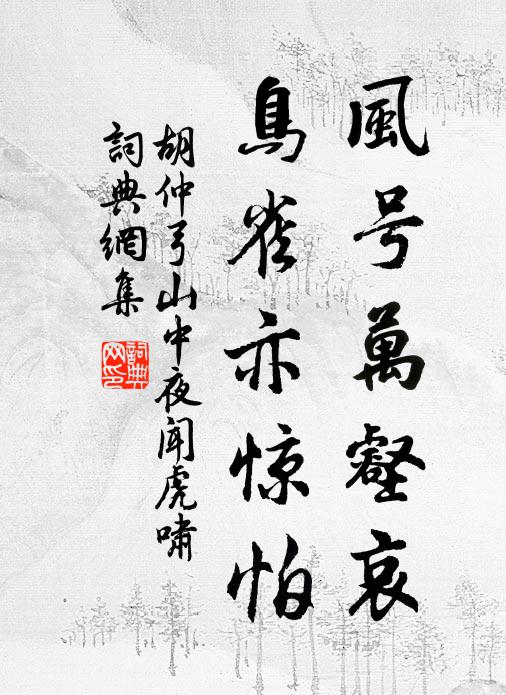 風号萬壑哀
鳥雀亦惊怕
胡仲弓山中夜聞虎嘯
詞典網集
詞典网印